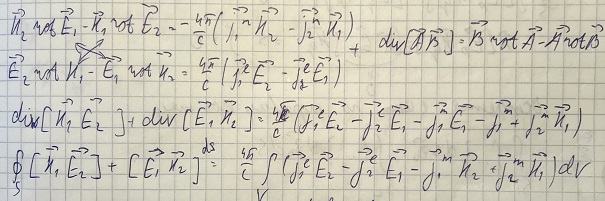 H⃗₂ rot E⃗₁ - H⃗₁ rot E⃗₂ = - 4π/c (j⃗₁ᵐ H⃗₂ - j⃗₂ᵐ H⃗₁) + div[A⃗B⃗] = B⃗ rot A⃗ - A⃗ rot B⃗
E⃗₂ rot H⃗₁ - E⃗₁ rot H⃗₂ = 4π/c (j⃗₁ᵉ E⃗₂ - j⃗₂ᵉ E⃗₁)
div[H⃗₁ E⃗₂] + div[E⃗₁ H⃗₂] = 4π/c (j⃗₁ᵉ E⃗₂ - j⃗₂ᵉ E⃗₁ - j⃗₁ᵐ E⃗₁ - j⃗₁ᵐ + j⃗₂ᵐ H⃗₁)
∮_S [H⃗₁ E⃗₂] + [E⃗₁ H⃗₂] dS = 4π/c ∫_V (j⃗₁ᵉ E⃗₂ - j⃗₂ᵉ E⃗₁ - j⃗₁ᵐ H⃗₂ + j⃗₂ᵐ H⃗₁) dV